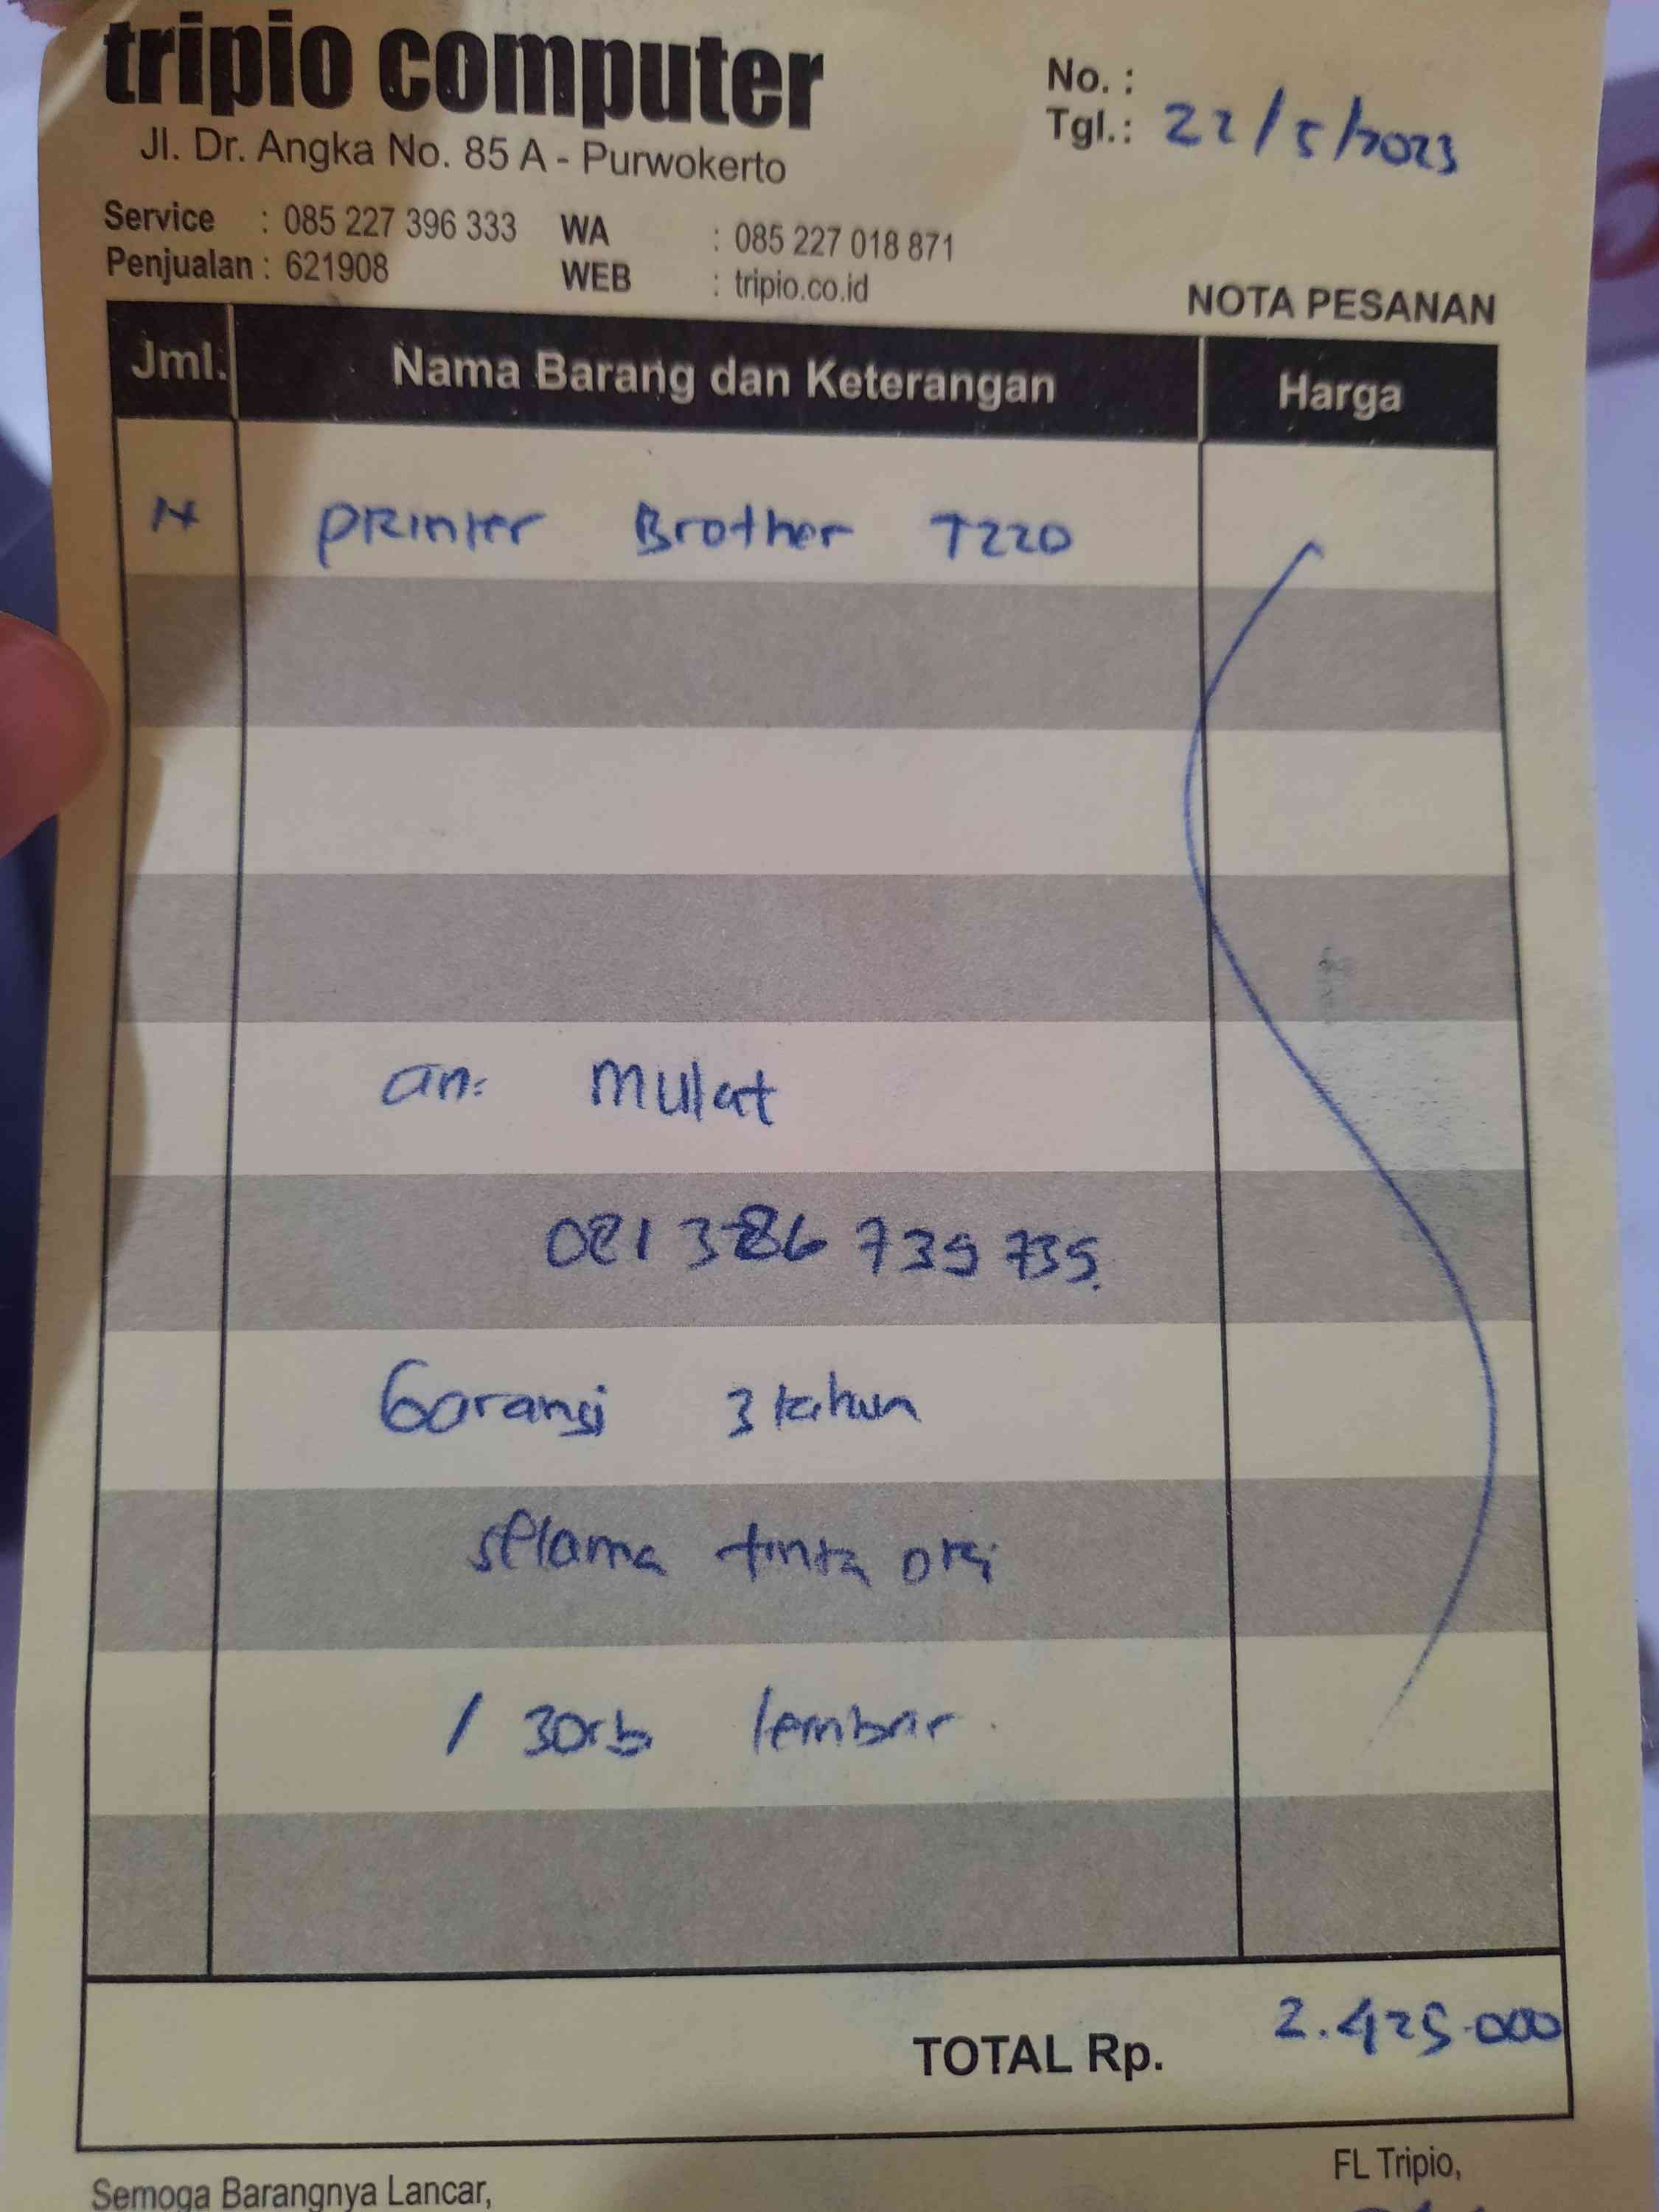 tripio computer
Jl. Dr. Angka No. 85 A - Purwokerto
No. :
Tgl.: 22/5/2023
Service : 085 227 396 333 WA : 085 227 018 871
Penjualan : 621908 WEB : tripio.co.id
NOTA PESANAN
Jml. Nama Barang dan Keterangan Harga
1x Printer Brother T220
an: Mulat
081 386 735 735.
Garansi 3 tahun
selama tinta ori
/ 30rb lembar.
TOTAL Rp. 2.425.000
FL Tripio,
Semoga Barangnya Lancar,